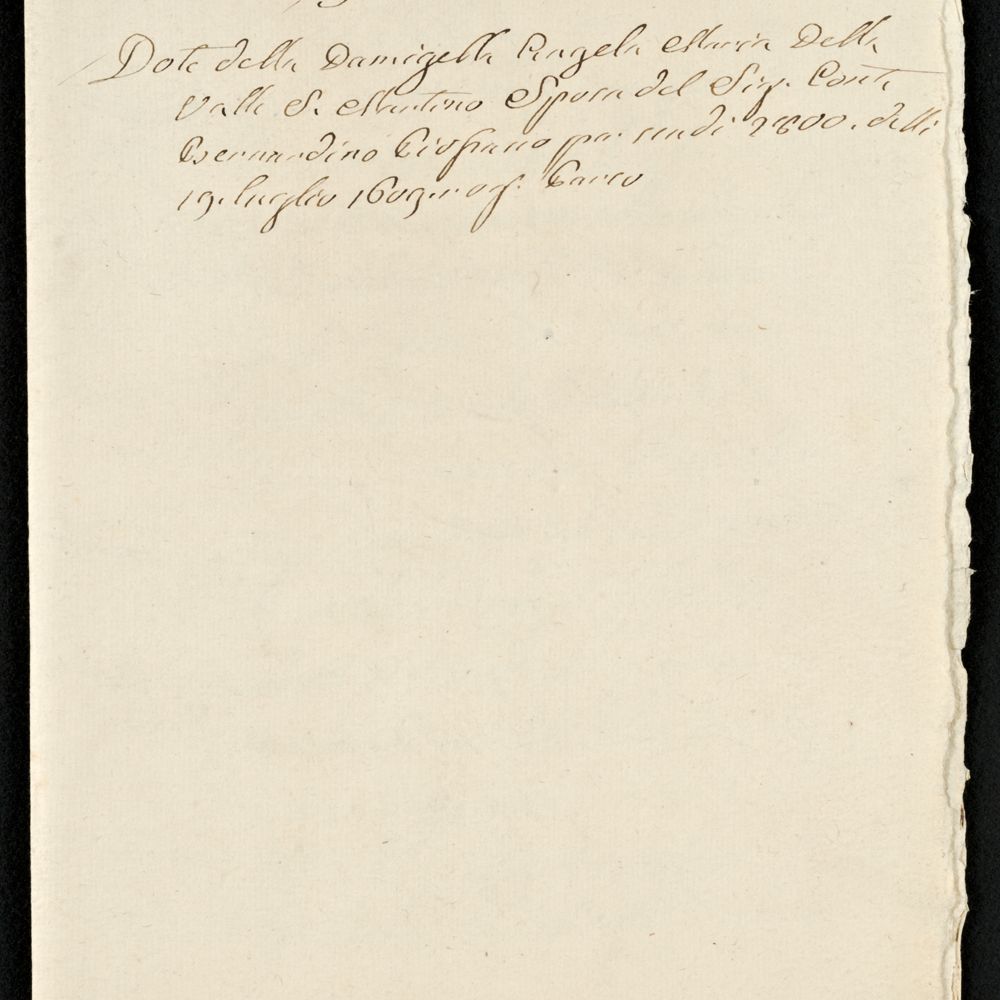 Dote della Damigella Angela Maria Della
Valle S. Martino Sposa del Sig. Conte
Bernardino per scudi 2800. delli
19. luglio 1609. rog.